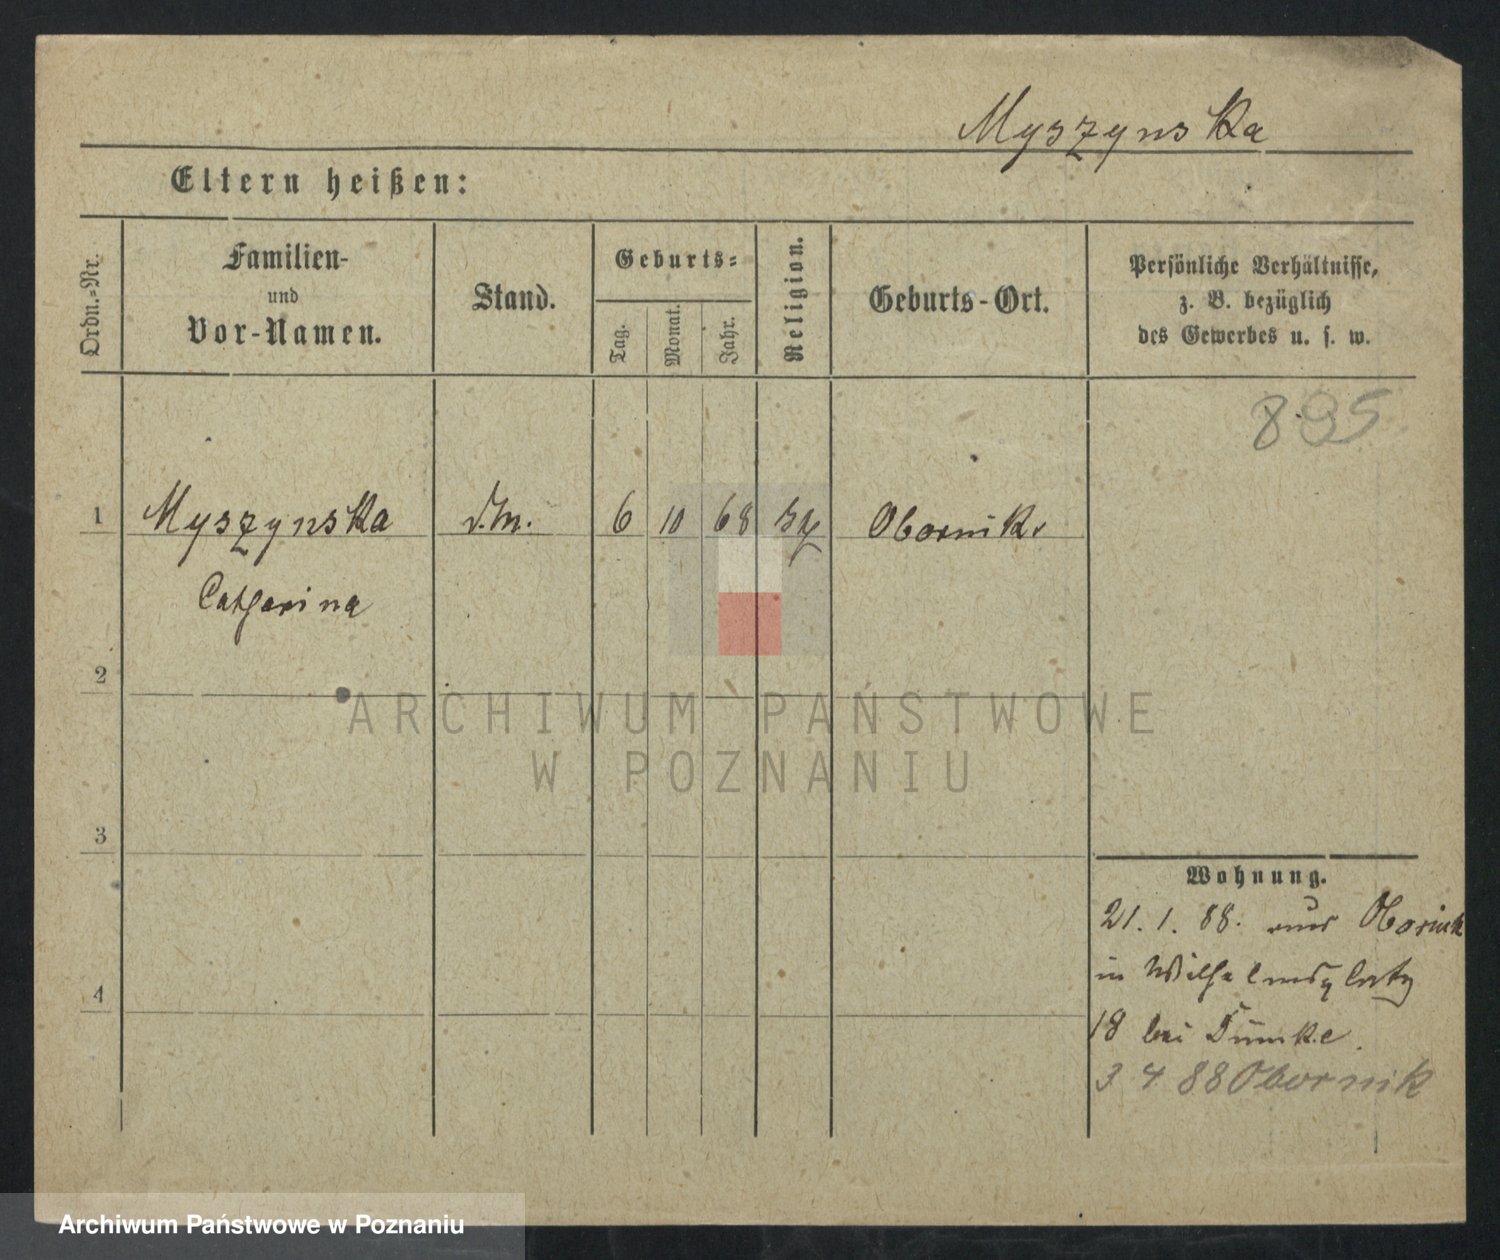 Myszynska
Eltern heißen:
Ordn.-Nr.
Familien-
und
Vor-Namen.
Stand.
Geburts-
Tag.
Monat.
Jahr.
Religion.
Geburts-Ort.
Persönliche Verhältnisse,
z. B. bezüglich
des Gewerbes u. s. w.
895
1 Myszynska d. M. 6 10 68 Obornik
Catharina
2
3
4
Wohnung.
21. 1. 88. aus Obornik
in Wilhelmsplatz
18 bei Dümke.
3 4 88 Obornik
ARCHIWUM PAŃSTWOWE
W POZNANIU
Archiwum Państwowe w Poznaniu